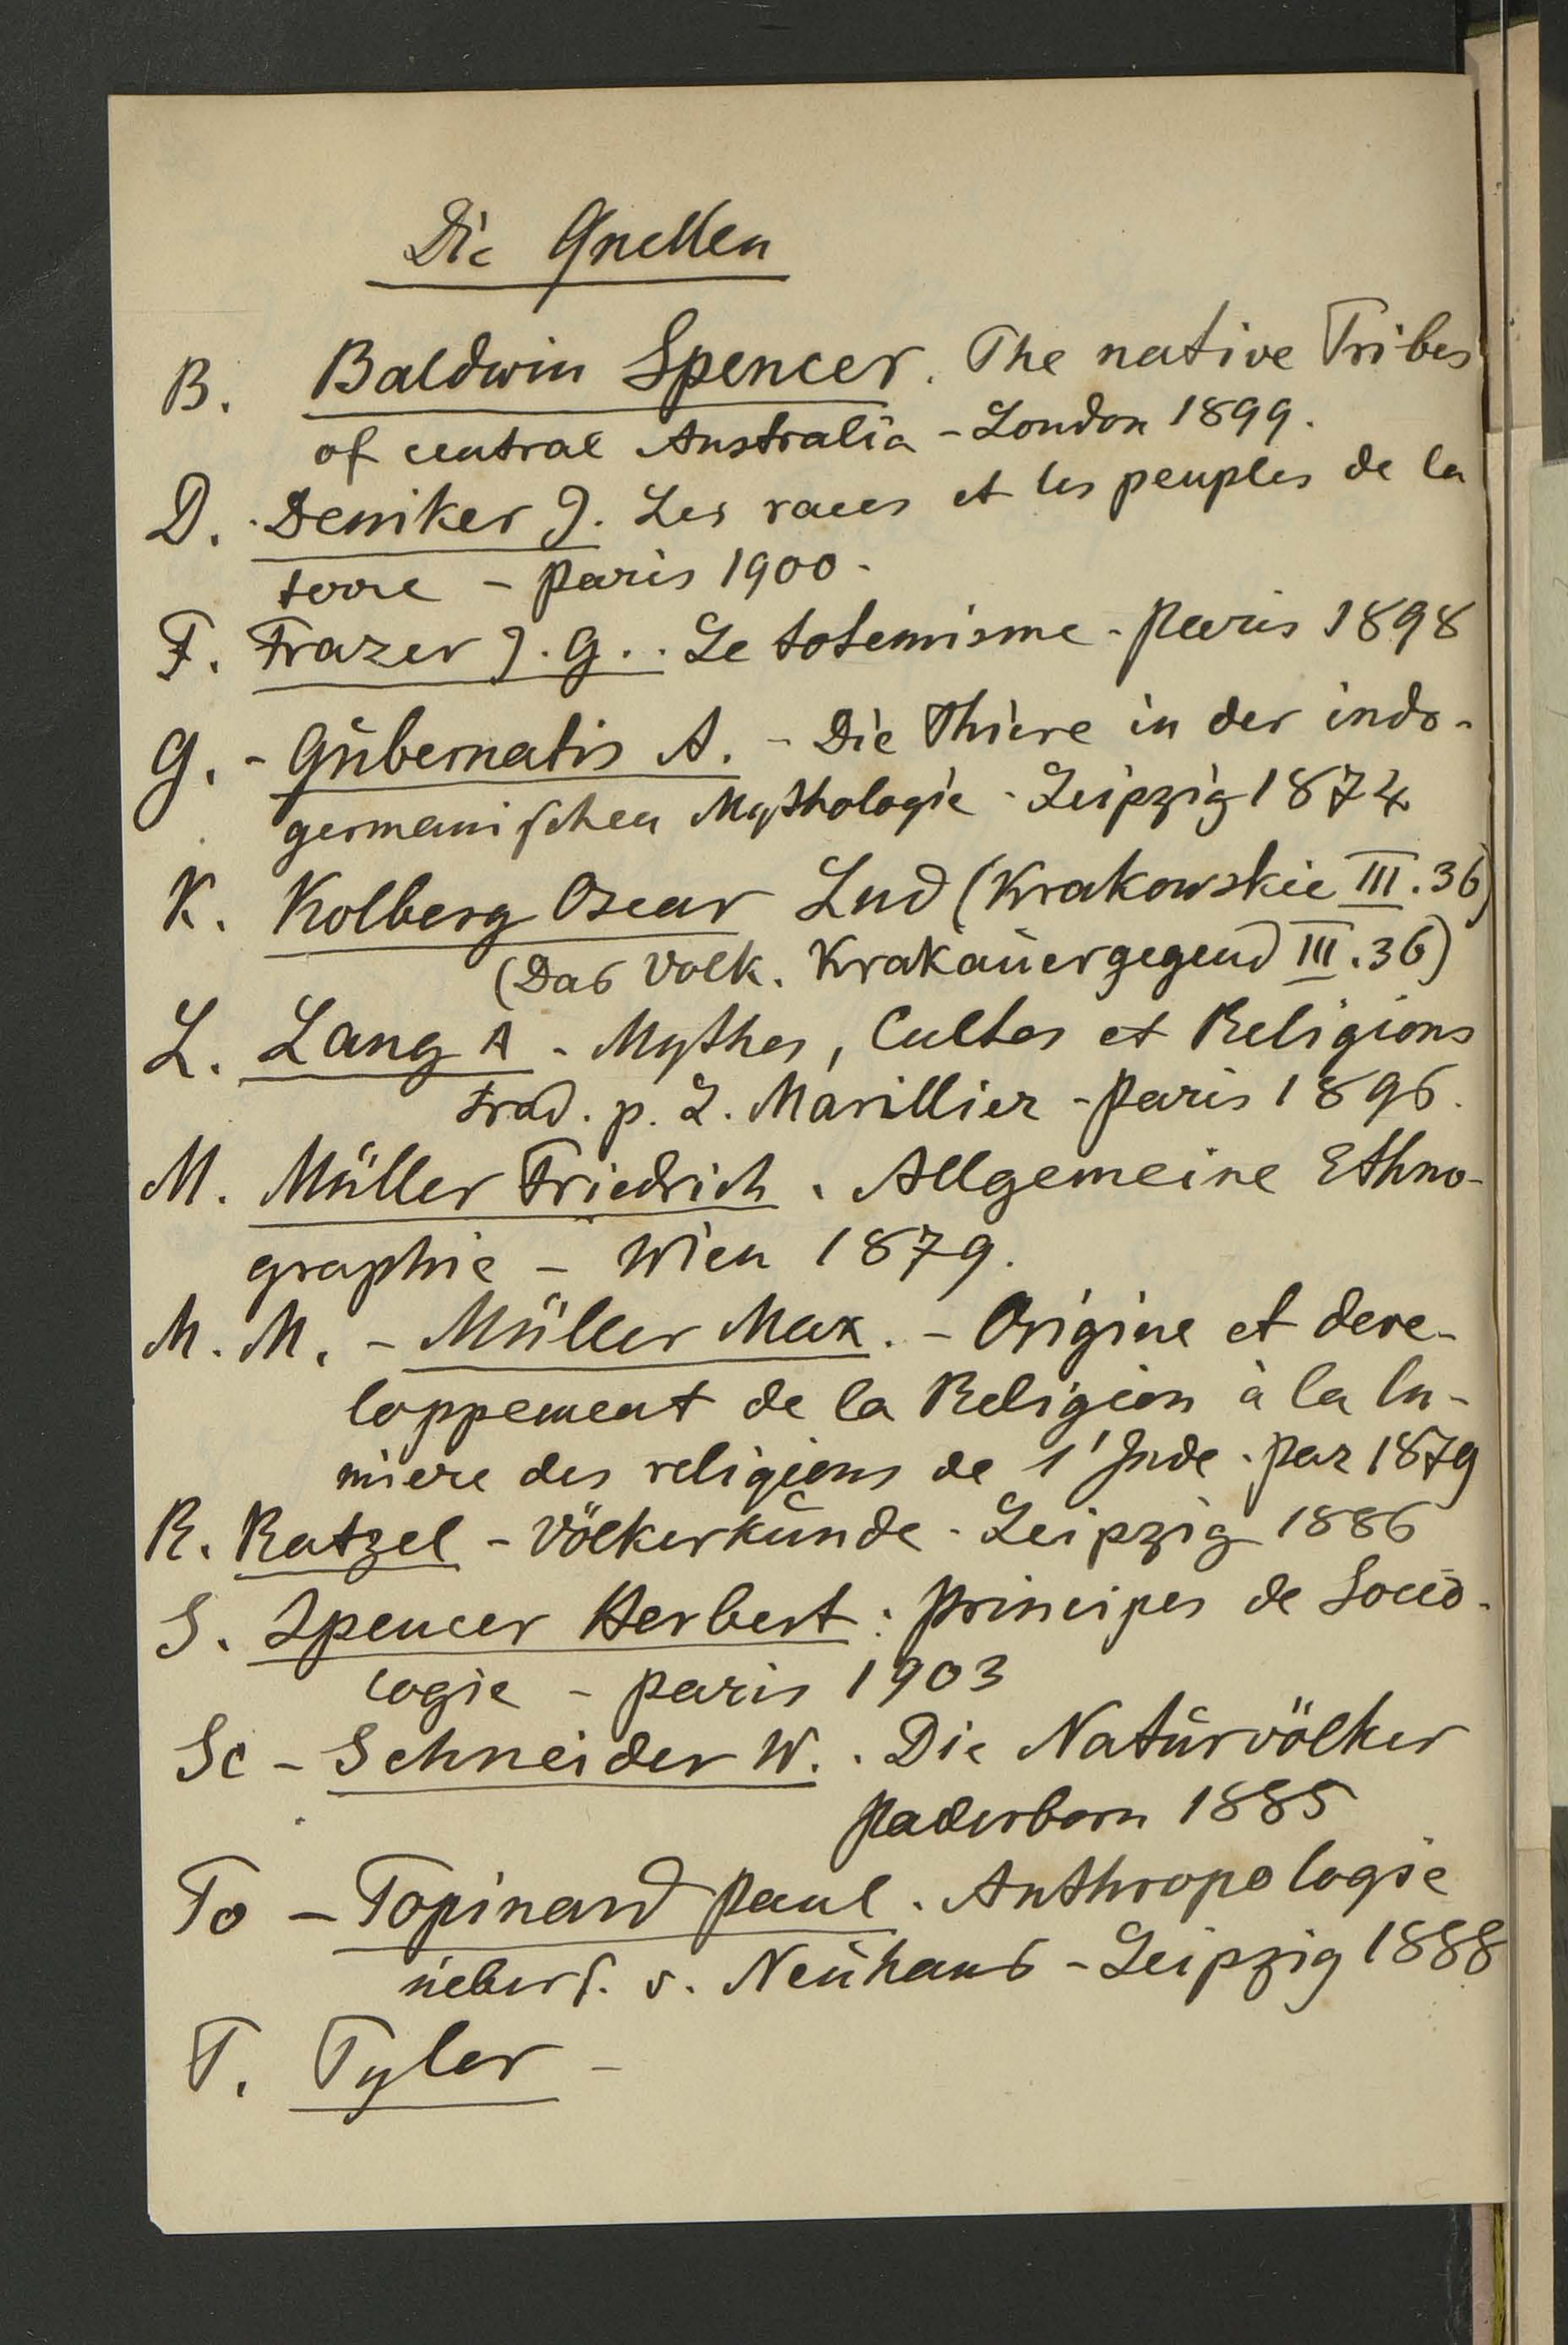 Die Quellen
B. Baldwin Spencer. The native Tribes
of central Australia - London 1899.
D. Deniker J. Les races et les peuples de la
terre - Paris 1900.
F. Frazer J. G.. Le totemisme - Paris 1898
G. - Gubernatis A. - Die Thiere in der indo-
germanischen Mythologie - Leipzig 1874
K. Kolberg Oscar Lud (Krakowskie III. 36)
(Das Volk. Krakauergegend III. 36)
L. Lang A - Mythes, Cultes et Religions
trad. p. L. Marillier - Paris 1896.
M. Müller Friedrich. Allgemeine Ethno-
graphie - Wien 1879.
M. M. - Müller Max. - Origine et deve-
loppement de la Religion à la lu-
miere des religions de l'Inde. Par 1879
R. Ratzel - Völkerkunde - Leipzig 1886
S. Spencer Herbert: Principes de Socio-
logie - Paris 1903
Sc - Schneider W. . Die Naturvölker
Paderborn 1885
To - Topinard Paul. Anthropologie
uebers. v. Neuhaus - Leipzig 1888
T. Tyler -